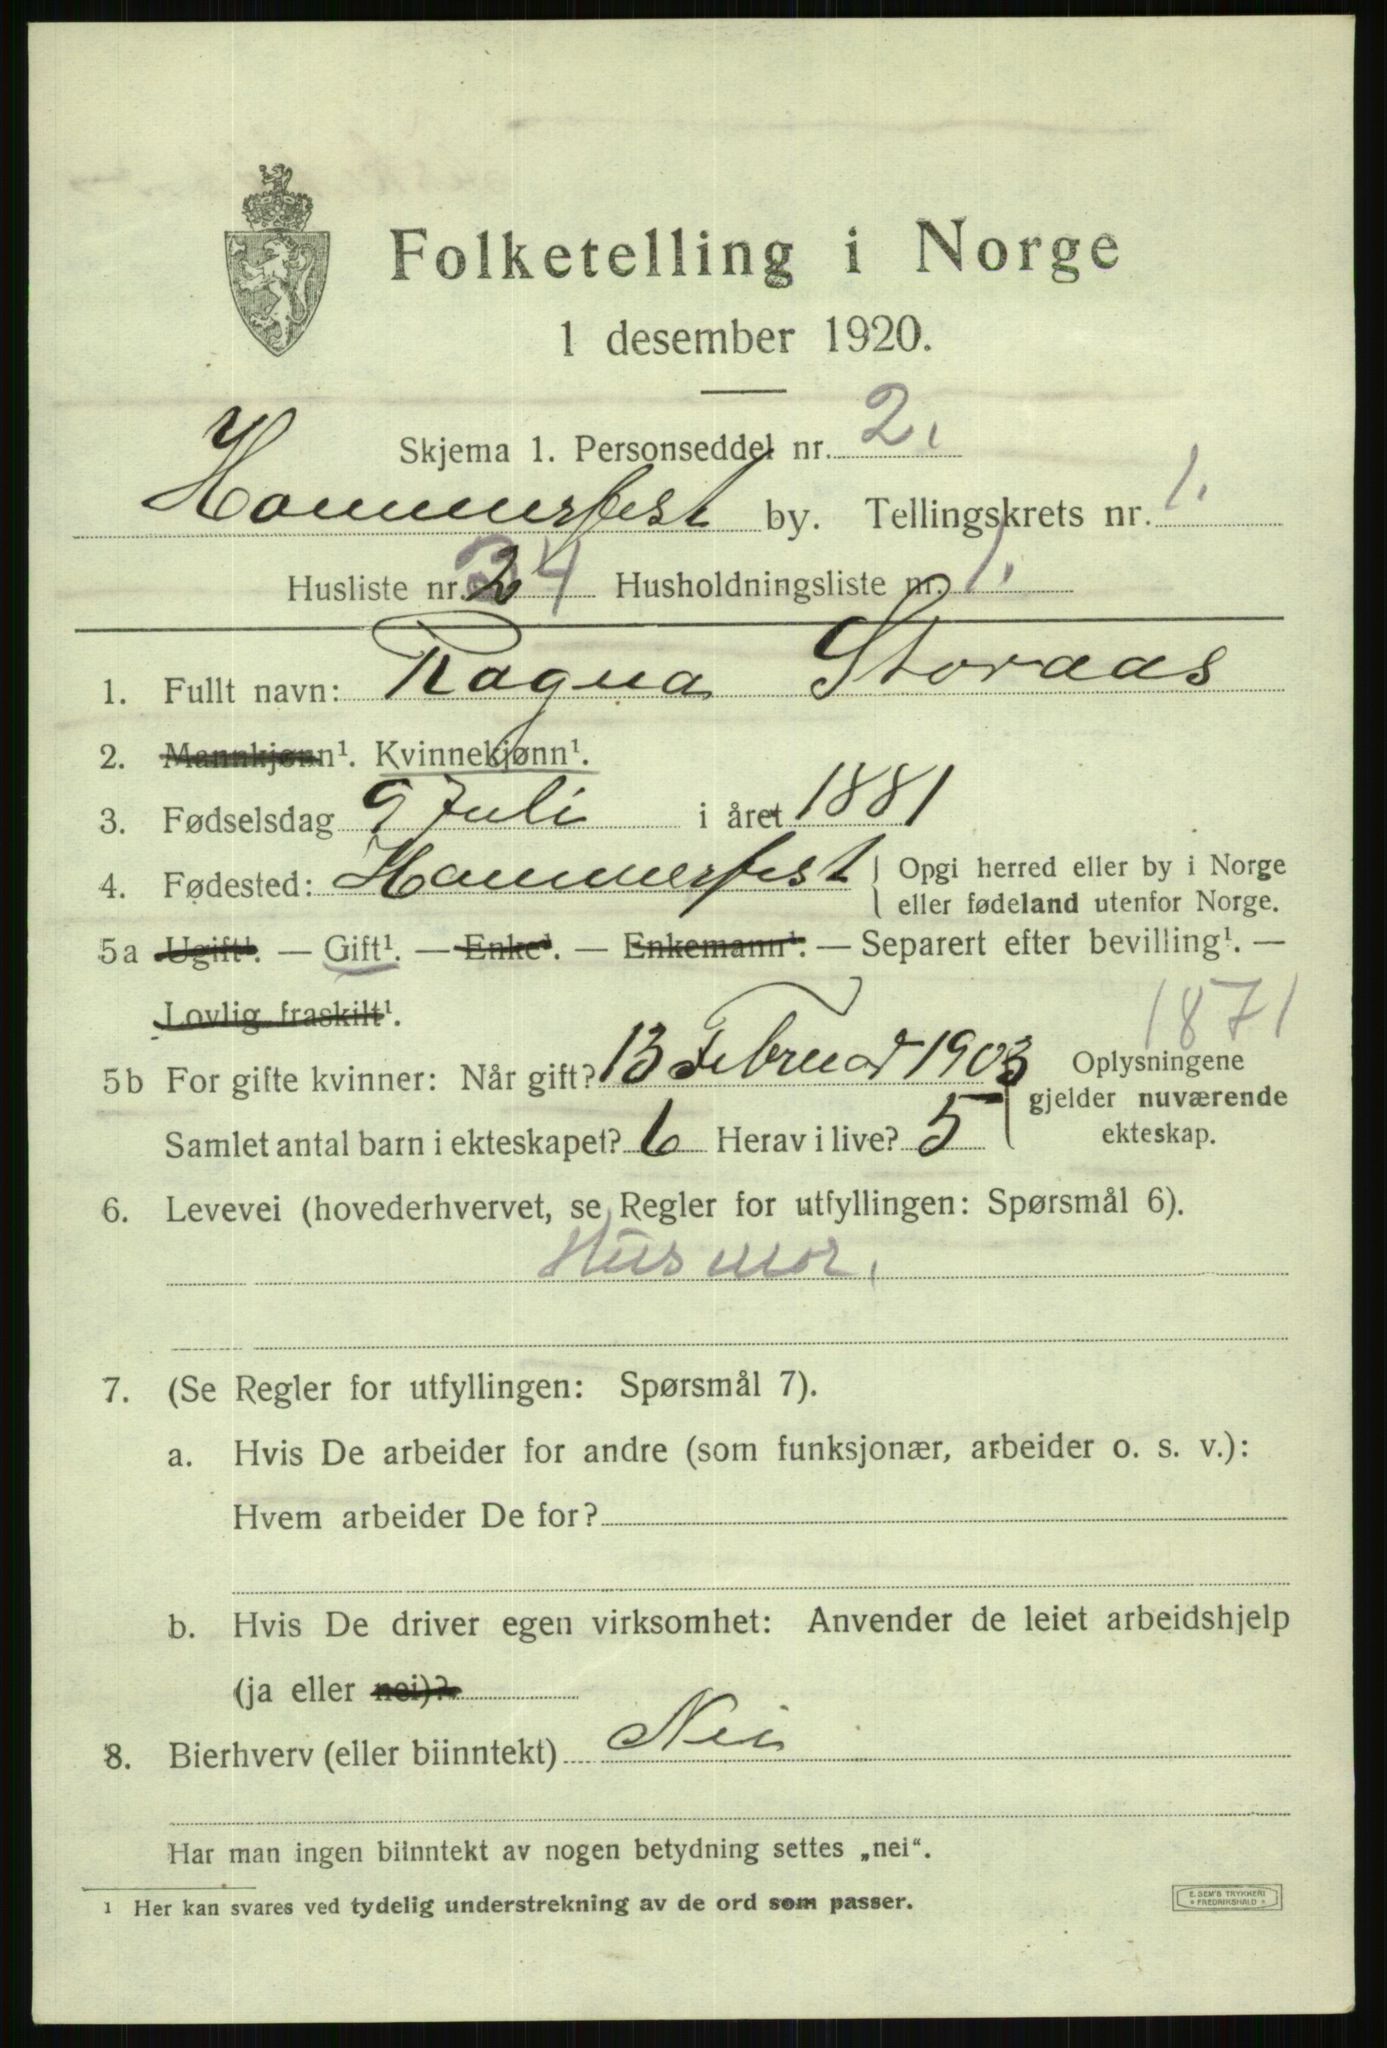 Folketelling i Norge
1 desember 1920.
Skjema 1. Personseddel nr. 2.
Hammerfest by. Tellingskrets nr. 1.
Husliste nr. 24 Husholdningsliste nr. 1.
1. Fullt navn: Ragna Storaas
2. Mannkjønn¹. Kvinnekjønn¹.
3. Fødselsdag 9 Juli i året 1881
4. Fødested: Hammerfest Opgi herred eller by i Norge
eller fødeland utenfor Norge.
5a Ugift¹. — Gift¹. — Enke¹. — Enkemann¹. — Separert efter bevilling¹. —
Lovlig fraskilt¹.
1871
5b For gifte kvinner: Når gift? 13 Februar 1903 Oplysningene
gjelder nuværende
Samlet antal barn i ekteskapet? 6 Herav i live? 5 ekteskap.
6. Levevei (hovederhvervet, se Regler for utfyllingen: Spørsmål 6).
Husmor.
7. (Se Regler for utfyllingen: Spørsmål 7).
a. Hvis De arbeider for andre (som funksjonær, arbeider o. s. v.):
Hvem arbeider De for?
b. Hvis De driver egen virksomhet: Anvender de leiet arbeidshjelp
(ja eller nei)?
8. Bierhverv (eller biinntekt) Nei
Har man ingen biinntekt av nogen betydning settes „nei“.
¹ Her kan svares ved tydelig understrekning av de ord som passer.
E. SEM'S TRYKKERI
* FREDRIKSHALD *